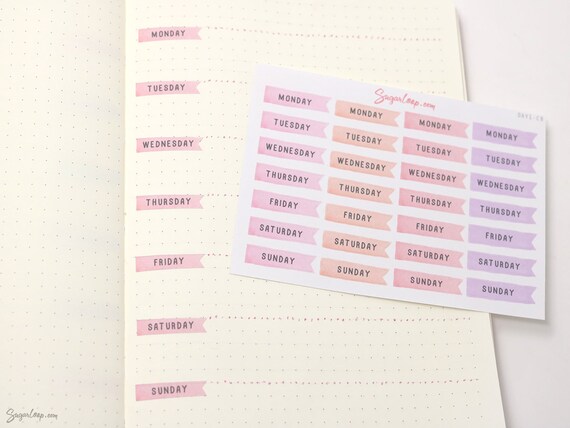 MONDAY
TUESDAY
WEDNESDAY
THURSDAY
FRIDAY
SATURDAY
SUNDAY
SugarLoop.com
MONDAY MONDAY MONDAY MONDAY
TUESDAY TUESDAY TUESDAY TUESDAY
WEDNESDAY WEDNESDAY WEDNESDAY WEDNESDAY
THURSDAY THURSDAY THURSDAY THURSDAY
FRIDAY FRIDAY FRIDAY FRIDAY
SATURDAY SATURDAY SATURDAY SATURDAY
SUNDAY SUNDAY SUNDAY SUNDAY
SugarLoop.com